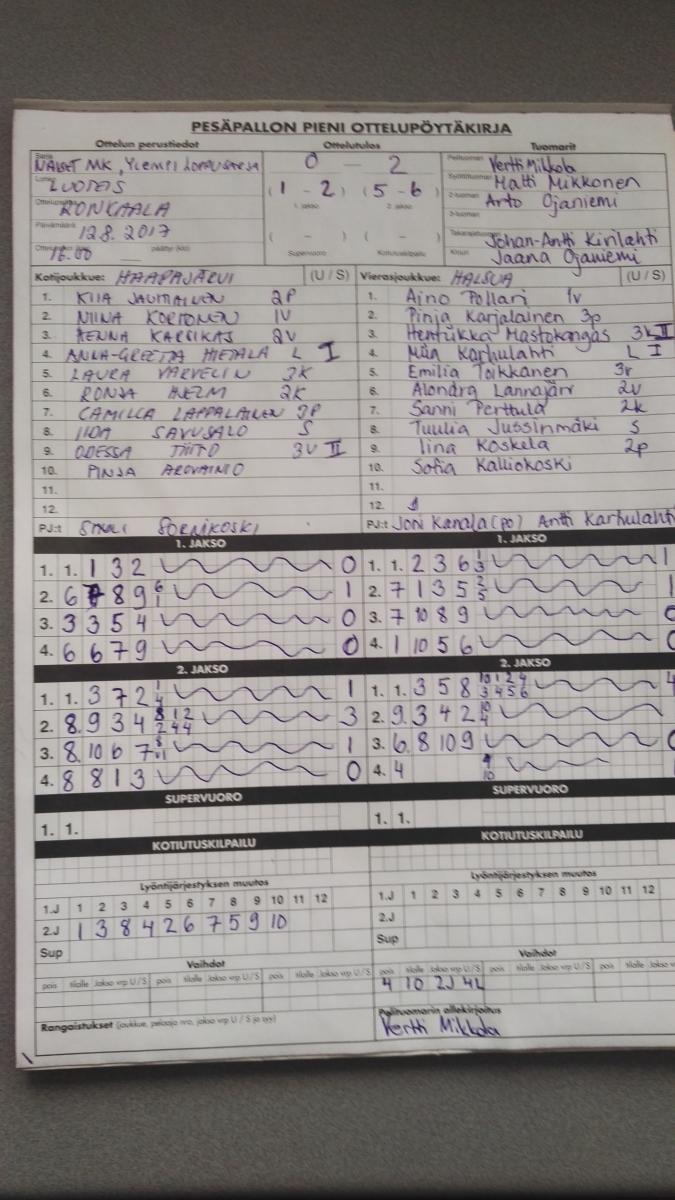 PESÄPALLON PIENI OTTELUPÖYTÄKIRJA
Ottelun perustiedot Ottelutulos Tuomarit
Sarja NAISET MK, YLEMPI LOPPUSARJA
Lohko LUOTEIS
RONKAALA
Päivämäärä 12.8.2017
16.00 päättyi (klo)
0 - 2
(1 - 2) (5 - 6)
1. jakso 2. jakso
( - ) ( - )
Supervuoro Kotiutuskilpailu
Pelituomari Vertti Mikkola
Syöttötuomari Matti Mikkonen
2-tuomari Arto Ojaniemi
3-tuomari
Takarajatuomari Johan-Antti Kirilahti
Kirjuri Jaana Ojaniemi
Kotijoukkue: HAAPAJÄRVI (U / S)
1. KIIA JAUHIAINEN 2P
2. NIINA KORTONEN 1V
3. HENNA KARSIKAS 2V
4. ANNA-GREETTA HIETALA L I
5. LAURA VARVELIN 3K
6. RONJA HJELM 2K
7. CAMILLA LAPPALAINEN 3P
8. IIDA SAVUSALO S
9. ODESSA TIITO 3V II
10. PINJA AROVAINIO
11.
12.
PJ:t SORNIKOSKI
Vierasjoukkue: HALSUA (U / S)
1. Aino Pollari 1v
2. Pinja Karjalainen 3p
3. Henriikka Mastokangas 3k II
4. Miia Karhulahti L I
5. Emilia Toikkanen 3v
6. Alondra Lannajärvi 2v
7. Sanni Perttula 2k
8. Tuulia Jussinmäki S
9. Iina Koskela 2p
10. Sofia Kalliokoski
11.
12.
PJ:t Joni Kanala (po) Antti Karhulahti
1. JAKSO
1. 1. 1 3 2 0
2. 6 7 8 9 6 1 1
3. 3 3 5 4 0
4. 6 6 7 9 0
1. JAKSO
1. 1. 2 3 6 1 3 1
2. 7 1 3 5 2 5 1
3. 7 10 8 9 0
4. 1 10 5 6 0
2. JAKSO
1. 1. 3 7 2 1 4 1
2. 8. 9 3 4 8 1 2 2 4 4 3
3. 8. 10 6 7 1
4. 8 8 1 3 0
2. JAKSO
1. 1. 3 5 8 10 1 2 4 3 4 5 6 4
2. 9. 3 4 2 10 4
3. 6. 8 10 9 0
4. 4 9 10 1
SUPERVUORO
1. 1.
SUPERVUORO
1. 1.
KOTIUTUSKILPAILU
KOTIUTUSKILPAILU
Lyöntijärjestyksen muutos
1.J 1 2 3 4 5 6 7 8 9 10 11 12
2.J 1 3 8 4 2 6 7 5 9 10
Sup
Lyöntijärjestyksen muutos
1.J 1 2 3 4 5 6 7 8 9 10 11 12
2.J
Sup
Vaihdot
pois tilalle Jakso vrp U / S pois tilalle Jakso vrp U / S pois tilalle Jakso vrp U / S
Rangaistukset (joukkue, pelaaja nro, jakso vrp U / S ja syy)
Vaihdot
pois tilalle Jakso vrp U / S pois tilalle Jakso vrp U / S pois tilalle Jakso
4 10 2J 4L
Pelituomarin allekirjoitus
Vertti Mikkola